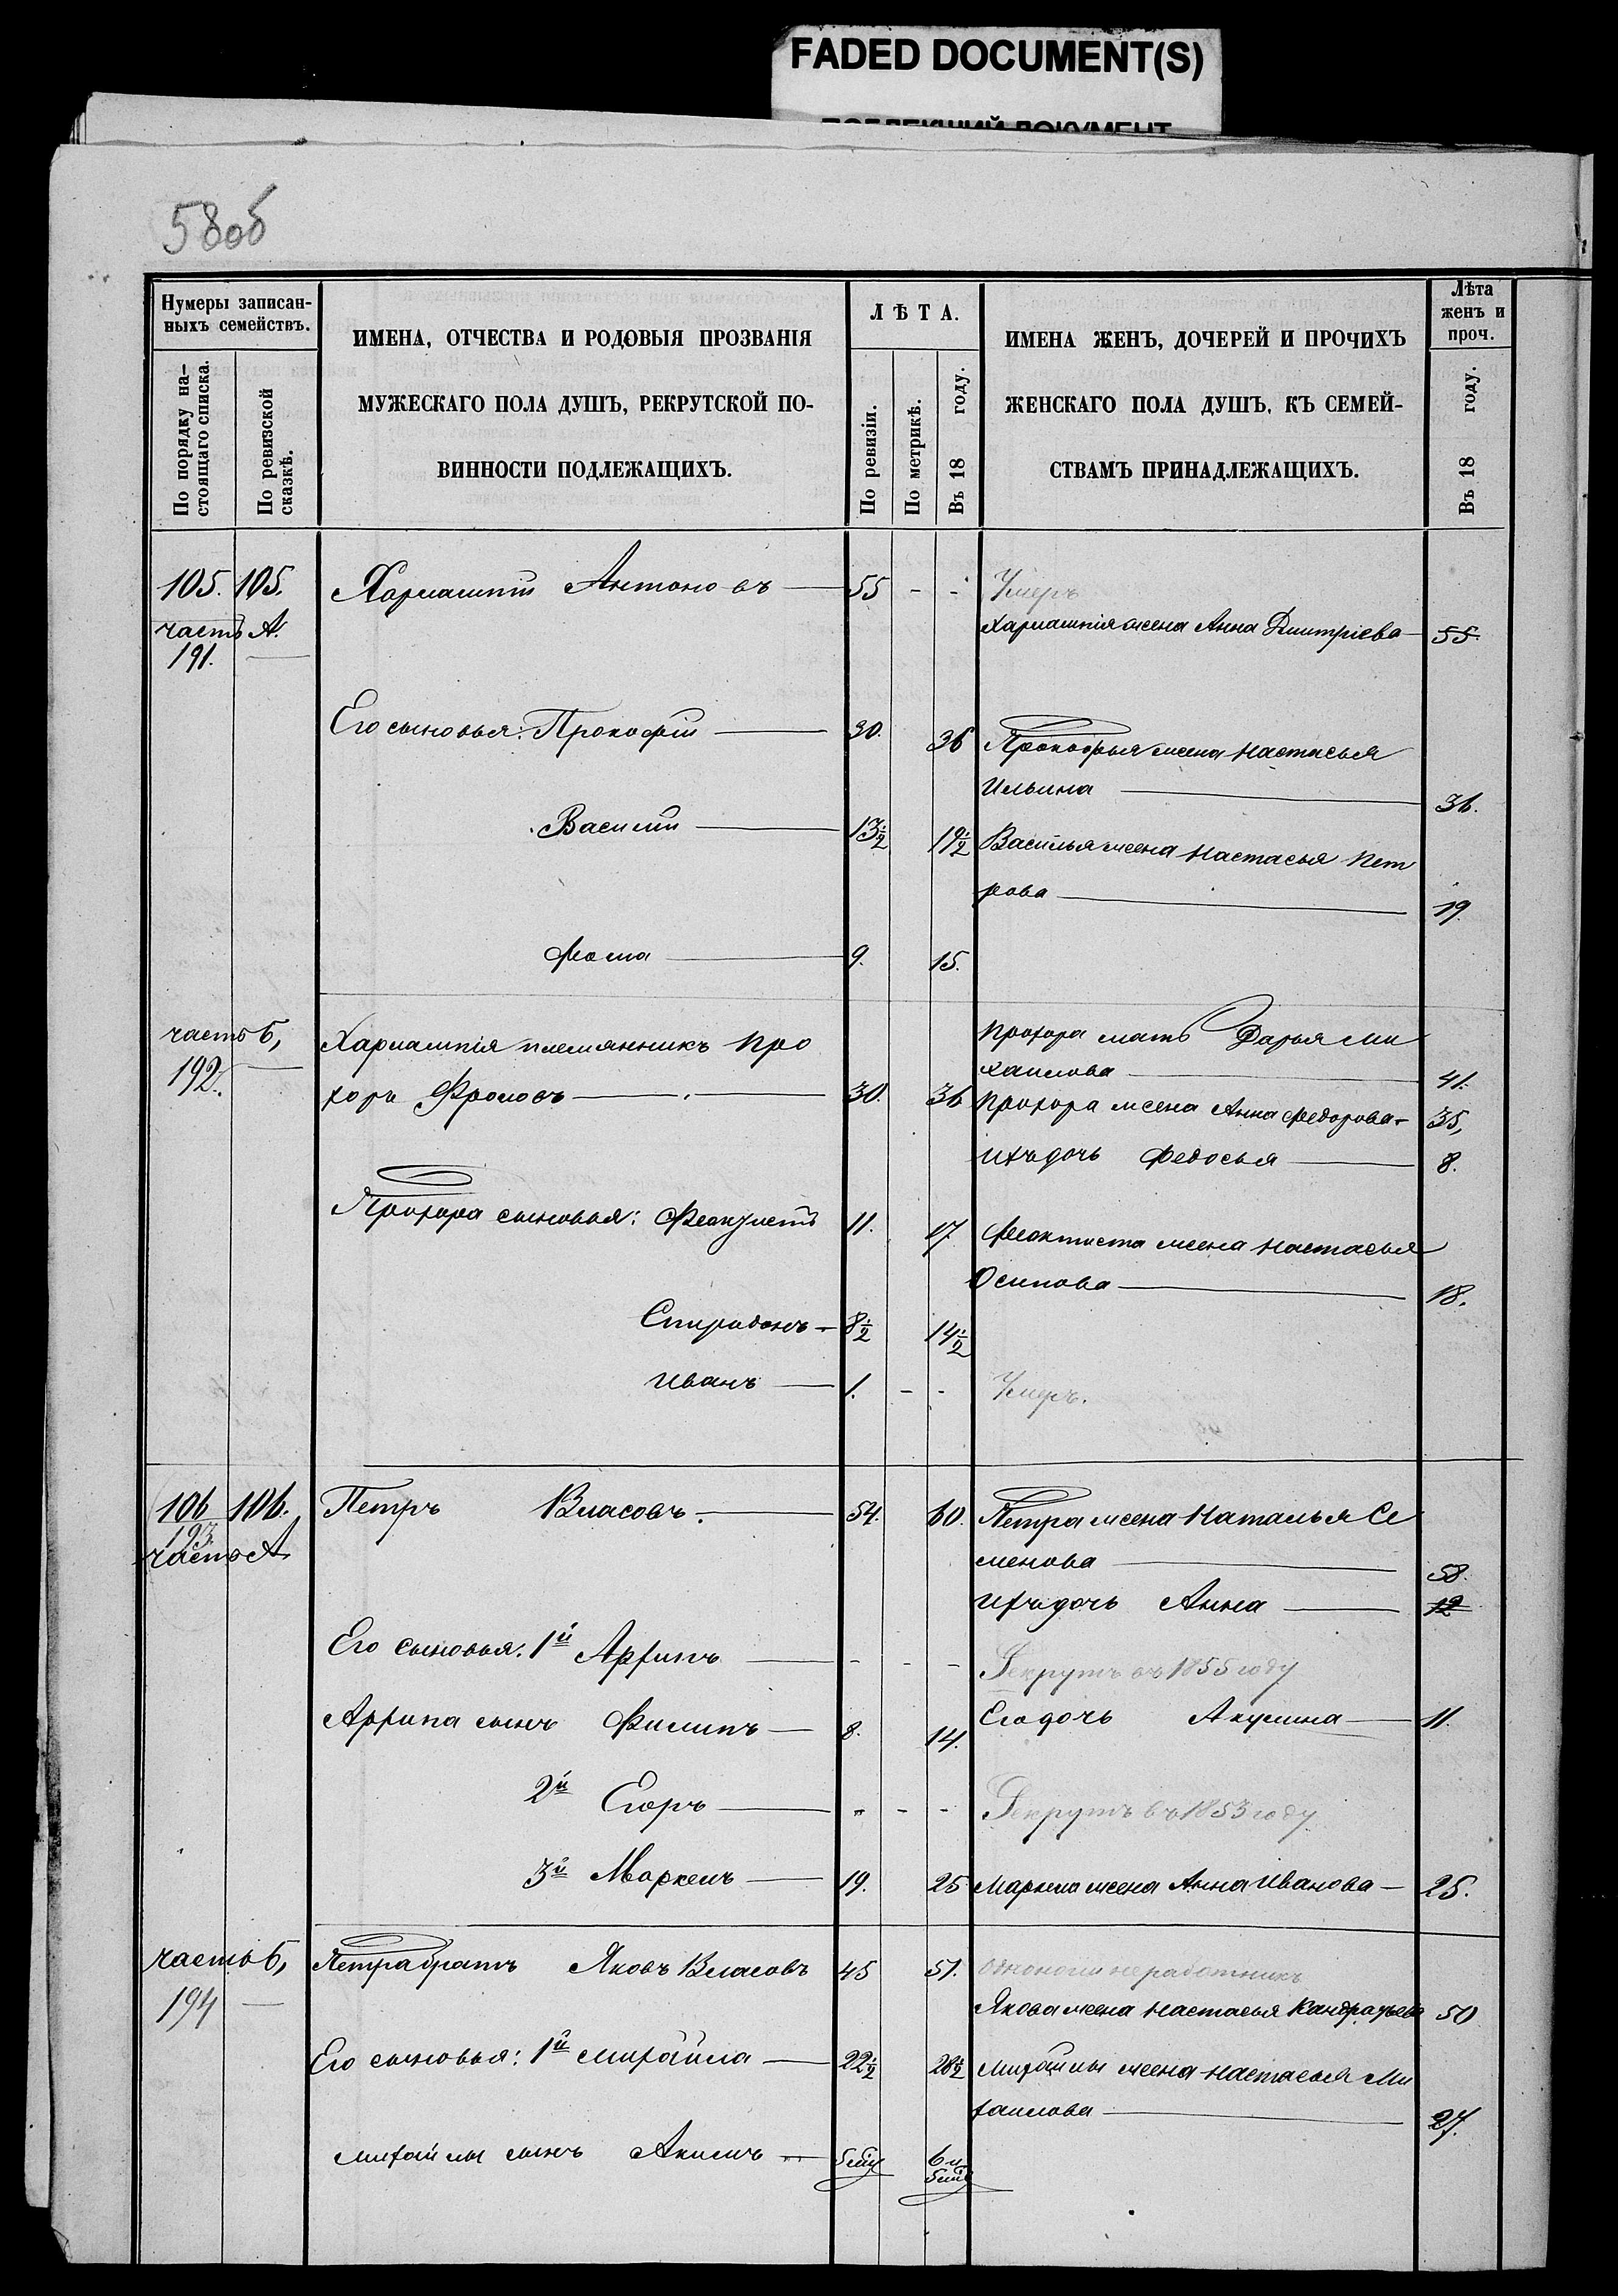 FADED DOCUMENT(S)
58об
Нумеры записан-
ныхъ семействъ.
По порядку на-
стоящаго списка.
По ревизской
сказкѣ.
ИМЕНА, ОТЧЕСТВА И РОДОВЫЯ ПРОЗВАНІЯ
МУЖЕСКАГО ПОЛА ДУШЪ, РЕКРУТСКОЙ ПО-
ВИННОСТИ ПОДЛЕЖАЩИХЪ.
ЛѢТА.
По ревизіи.
По метрикѣ.
Въ 18 году.
ИМЕНА ЖЕНЪ, ДОЧЕРЕЙ И ПРОЧИХЪ
ЖЕНСКАГО ПОЛА ДУШЪ, КЪ СЕМЕЙ-
СТВАМЪ ПРИНАДЛЕЖАЩИХЪ.
Лѣта
женъ и
проч.
Въ 18 году.
105. 105. Харлампій Антоновъ — 55 - - Умеръ
часть А. Харлампія жена Анна Дмитріева — 55.
191. —
Его сыновья: Прокофій — 30. 36 Прокофья жена Настасья
Ильина — 36.
Василій — 13½ 19½ Василья жена Настасья Пет
рова — 19.
Фома — 9. 15.
часть б, Харлампія племянникъ Про Прохора мать Дарья Ми
192. — хаилова — 41.
хоръ Фроловъ — 30. 36 Прохора жена Анна Федорова - 35,
ихъ дочь Федосья — 8.
Прохора сыновья: Феоктистъ 11. 17. Феоктиста жена Настасья
Осипова — 18.
Спиридонъ - 8½ 14½
Иванъ — 1. - - Умеръ.
106 106. Петръ Власовъ. — 54. 60. Петра жена Наталья Се
193. менова — 58.
часть А
ихъ дочь Анна — 12
Его сыновья: 1й Архипъ — - - - Рекрутъ въ 1855 году
Архипа сынъ Филипъ — 8. 14. Его дочь Акулина — 11.
2й Егоръ — - - - Рекрутъ въ 1853 году
3й Маркелъ — 19. 25 Маркела жена Анна Иванова — 25.
часть б, Петра братъ Яковъ Власовъ 45 51. одноногій неработникъ
194 — Якова жена Настасья Кандратьева 50
Его сыновья: 1й Михайла — 22½ 28½ Михайлы жена Настасья Ми
хаилова — 27.
Михайлы сынъ Акимъ